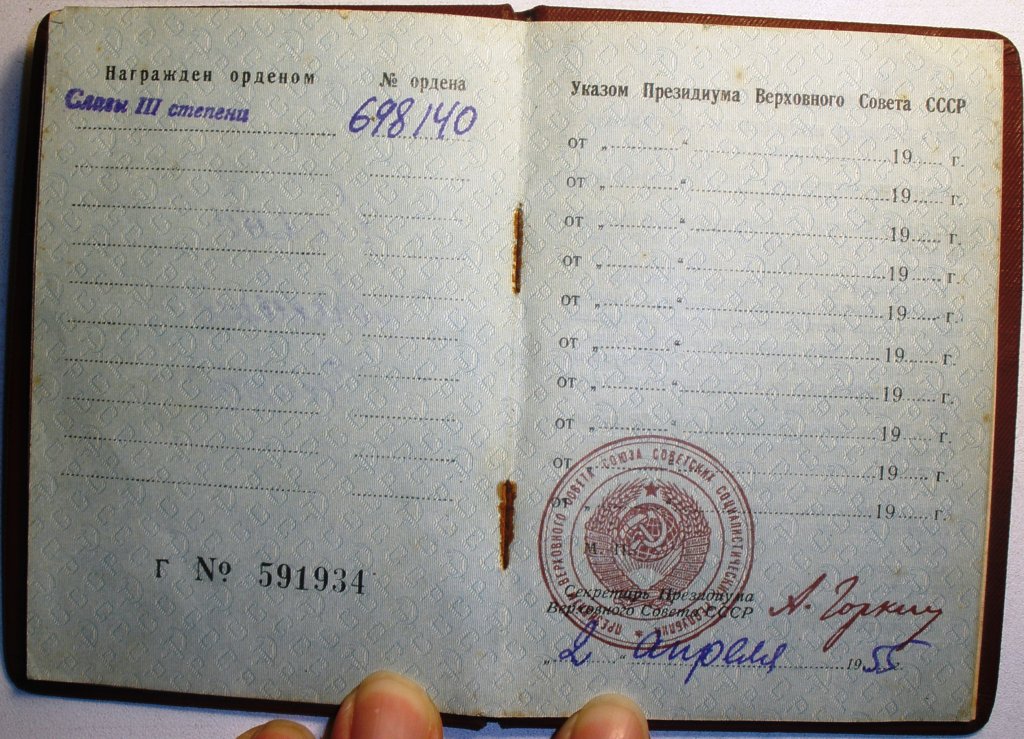 Награжден орденом № ордена
Славы III степени 698140
г № 591934
Указом Президиума Верховного Совета СССР
от „ “ 19 г.
от „ “ 19 г.
от „ “ 19 г.
от „ “ 19 г.
от „ “ 19 г.
от „ “ 19 г.
от „ “ 19 г.
от „ “ 19 г.
от 19 г.
от „ 19 г.
ВЕРХОВНОГО СОВЕТА СОЮЗА СОВЕТСКИХ СОЦИАЛИСТИЧЕСКИХ
М. П.
Секретарь Президиума
Верховного Совета СССР А. Горкин
„2“ апреля 1955 г.